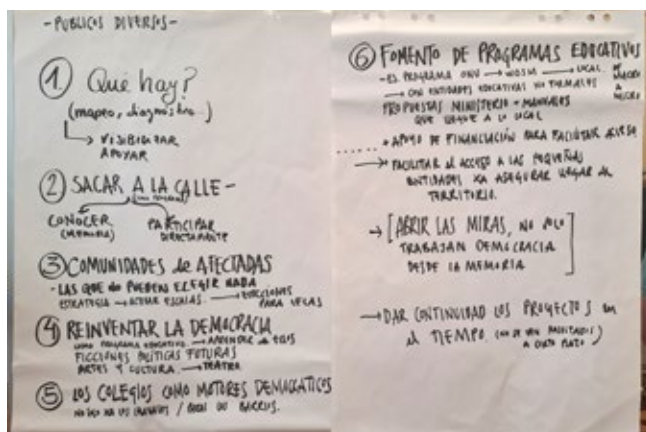 - PUBLICOS DIVERSOS -
① Qué hay?
(mapeo, diagnóstico...)
→ VISIBILIZAR
APOYAR
② SACAR A LA CALLE -
CONOCER
PARTICIPAR
(MEMORIA)
DIRECTAMENTE
③ COMUNIDADES de AFECTADAS
- LAS QUE NO PUEDEN ELEGIR NADA
ESTRATEGIA → ACTIVAR ESCALAS. →
PARA
④ REINVENTAR LA DEMOCRACIA
COMO PROGRAMA EDUCATIVO. → APRENDER de
FICCIONES POLÍTICAS FUTURAS
ARTES Y CULTURA. → TEATRO.
⑤ LOS COLEGIOS COMO MOTORES DEMOCRÁTICOS
⑥ FOMENTO DE PROGRAMAS EDUCATIVOS
- EJ. PROGRAMA ONU → WOSM → LOCAL. DE MACRO A MICRO
→ CON ENTIDADES EDUCATIVAS NO FORMALES
PROPUESTAS MINISTERIO - MANUALES
QUE LLEGUE A LO LOCAL
• APOYO DE FINANCIACIÓN PARA FACILITAR
→ FACILITAR el ACCESO A LAS PEQUEÑAS
ENTIDADES XA ASEGURAR LLEGAR AL
TERRITORIO.
→ [ABRIR LAS MIRAS, NO SOLO
TRABAJAN DEMOCRACIA
DESDE LA MEMORIA]
→ DAR CONTINUIDAD LOS PROYECTOS en
el TIEMPO.
A CORTO PLAZO)